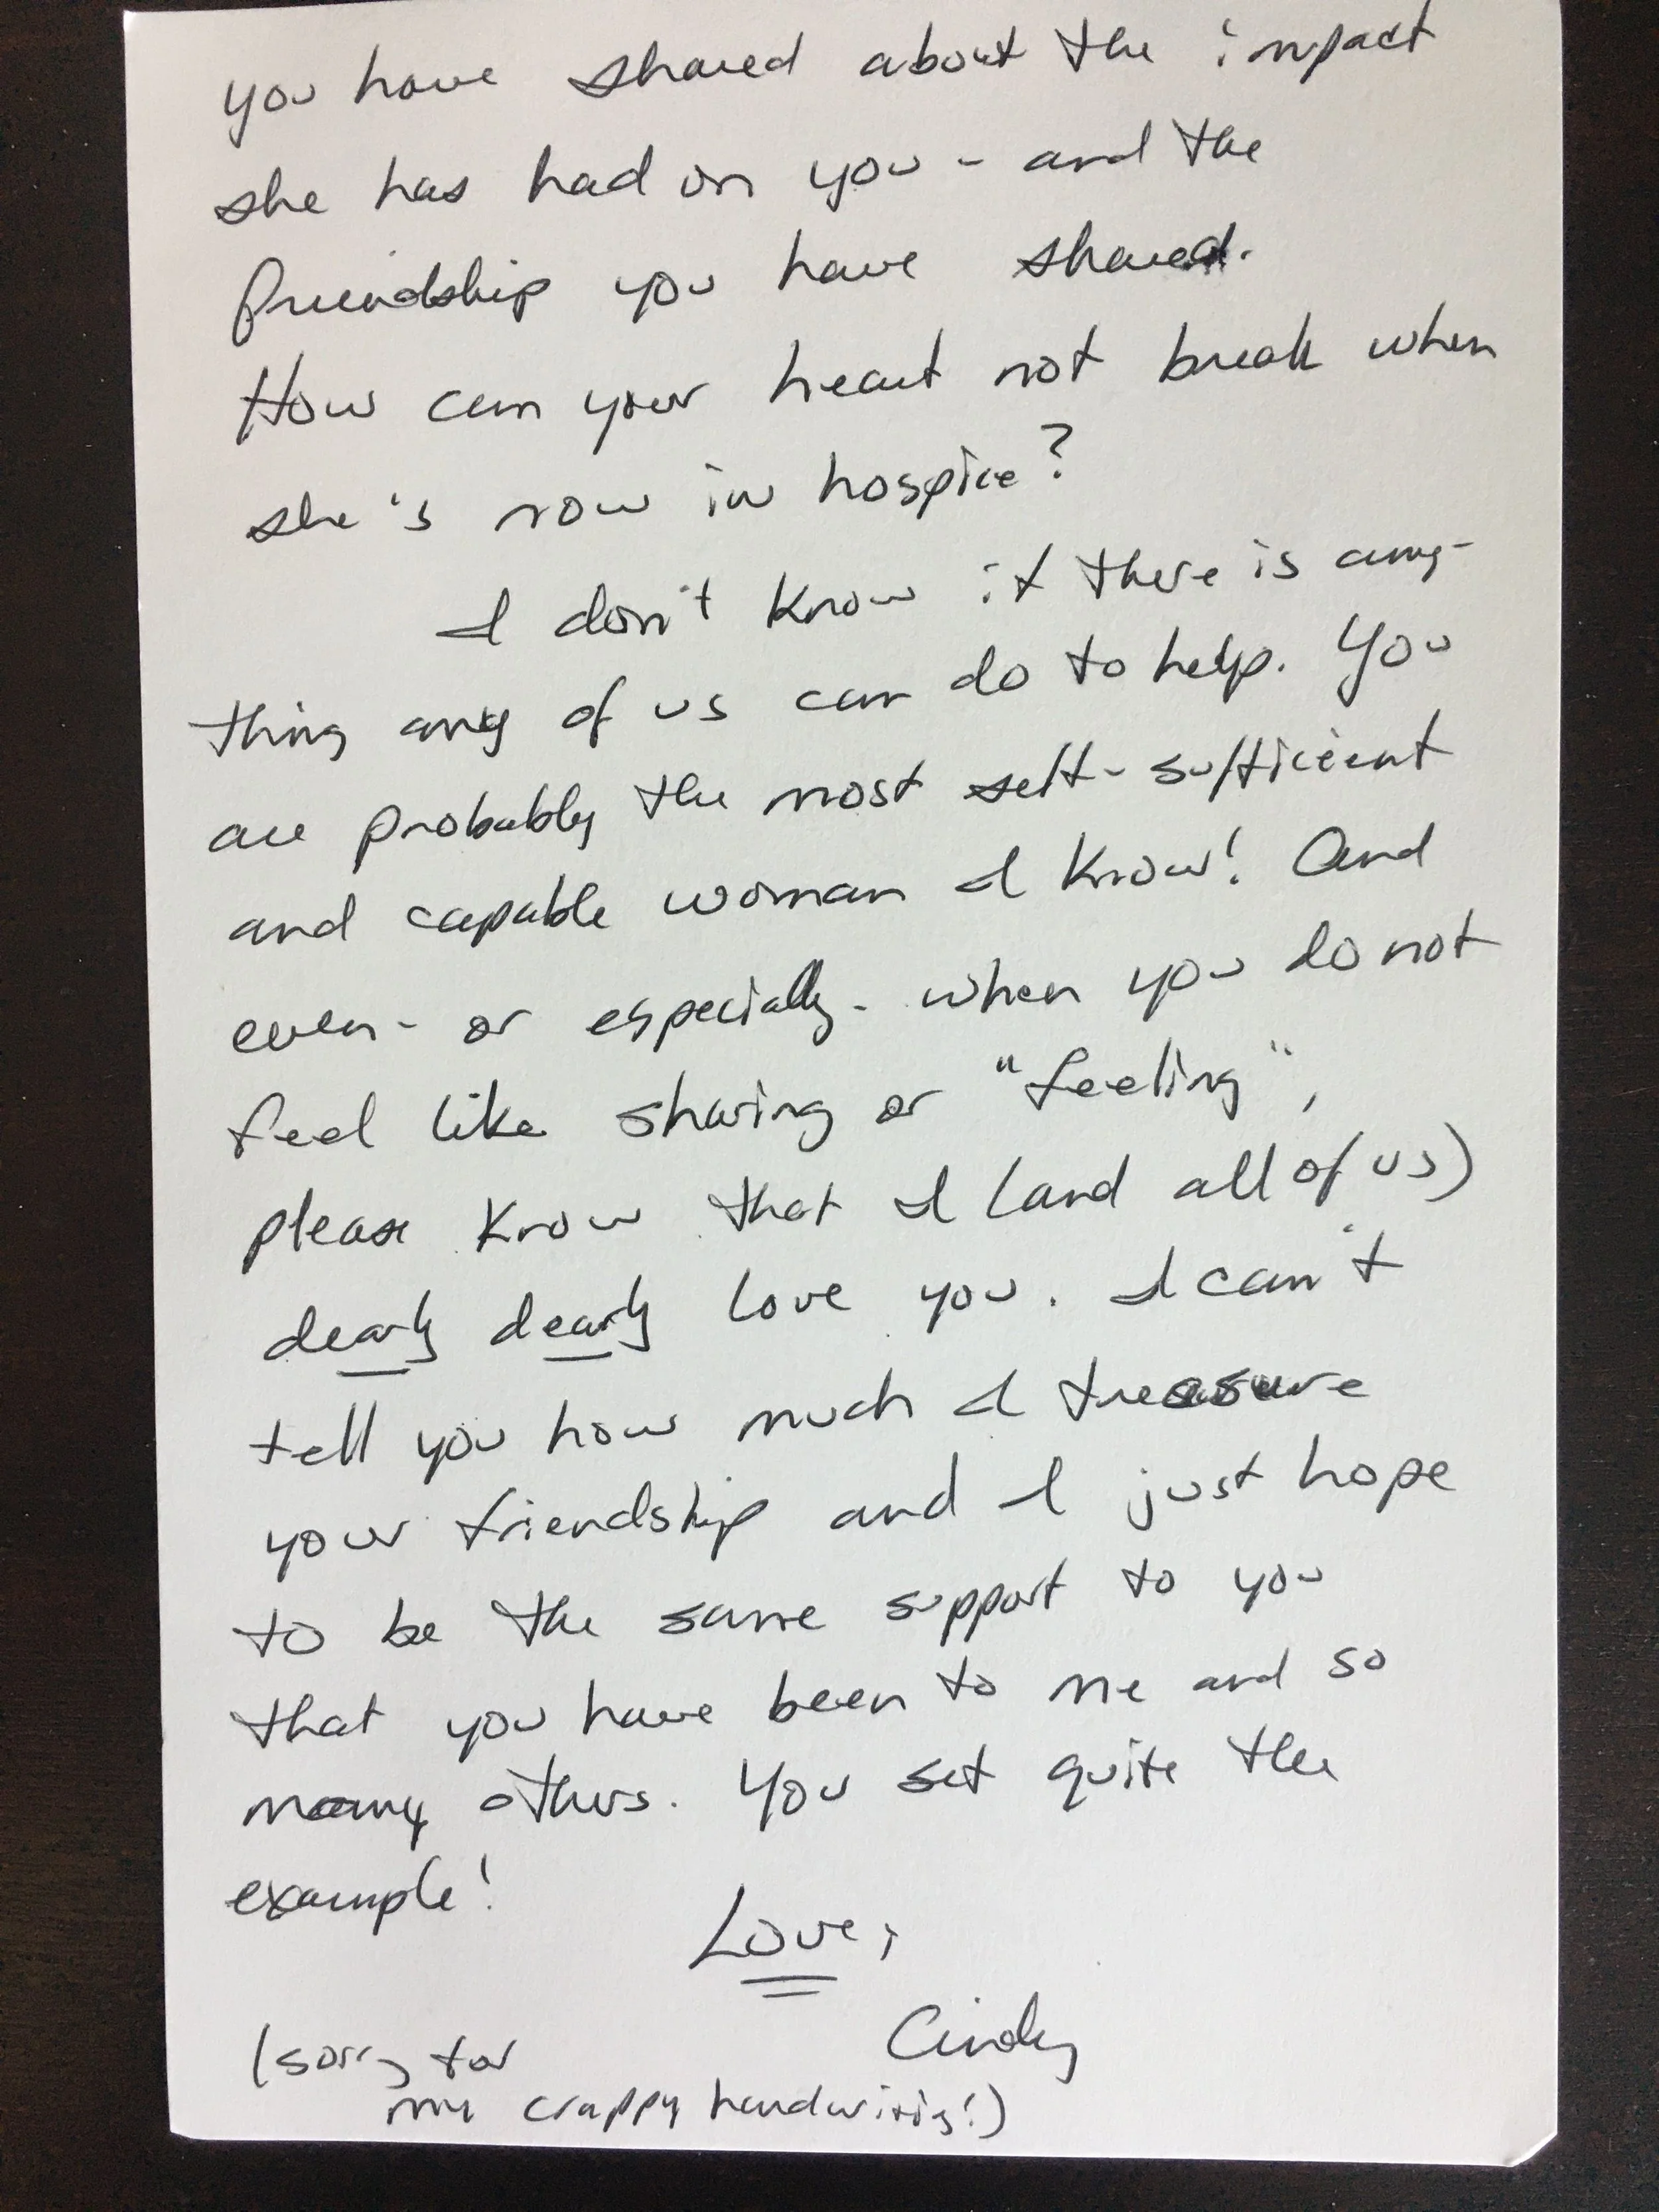 you have shared about the impact
she has had on you - and the
friendship you have shared.
How can your heart not break when
she's now in hospice?
I don't know if there is any-
thing any of us can do to help. You
are probably the most self-sufficient
and capable woman I know! And
even - or especially - when you do not
feel like sharing or "feeling",
please know that I (and all of us)
dearly dearly love you. I can't
tell you how much I treasure
your friendship and I just hope
to be the same support to you
that you have been to me and so
many others. You set quite the
example!
Love,
Cindy
(sorry for
my crappy handwriting!)